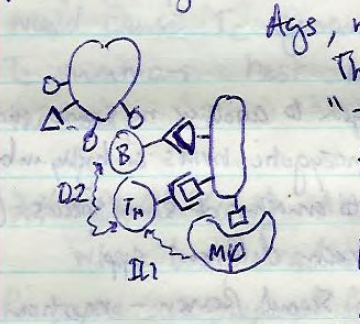 Ags,
Th
"-
B
IL2
TH
MΦ
IL1